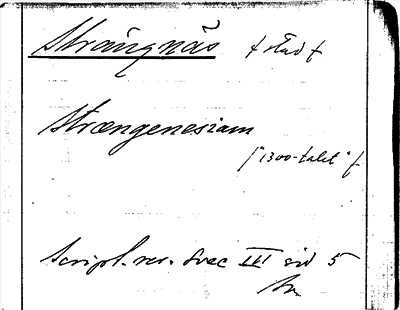 Strängnäs f stad f
Strængenesiam
f "1300-talet" f
Script. rer. Svec III sid 5